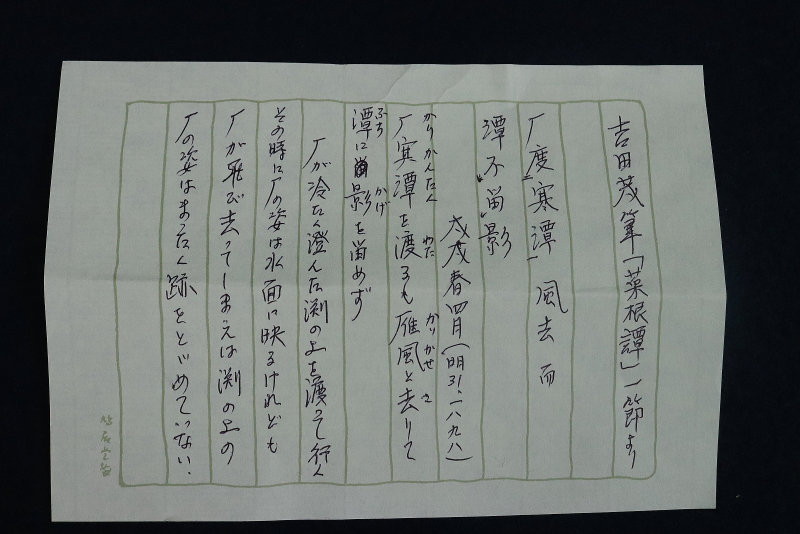 吉田茂筆「菜根譚」一節より
厂度寒潭 風去而
潭不留影
戊戌春四月(明31.一八九八)
厂寒潭を渡るも雁風と去りて
かりかんたん わた かりかぜ さ
潭に影を留めず
ふち かげ
厂が冷たく澄んだ渕の上を渡って行く
その時に厂の姿は水面に映るけれども
厂が飛び去ってしまえば渕の上の
厂の姿はまったく跡をとゞめていない.